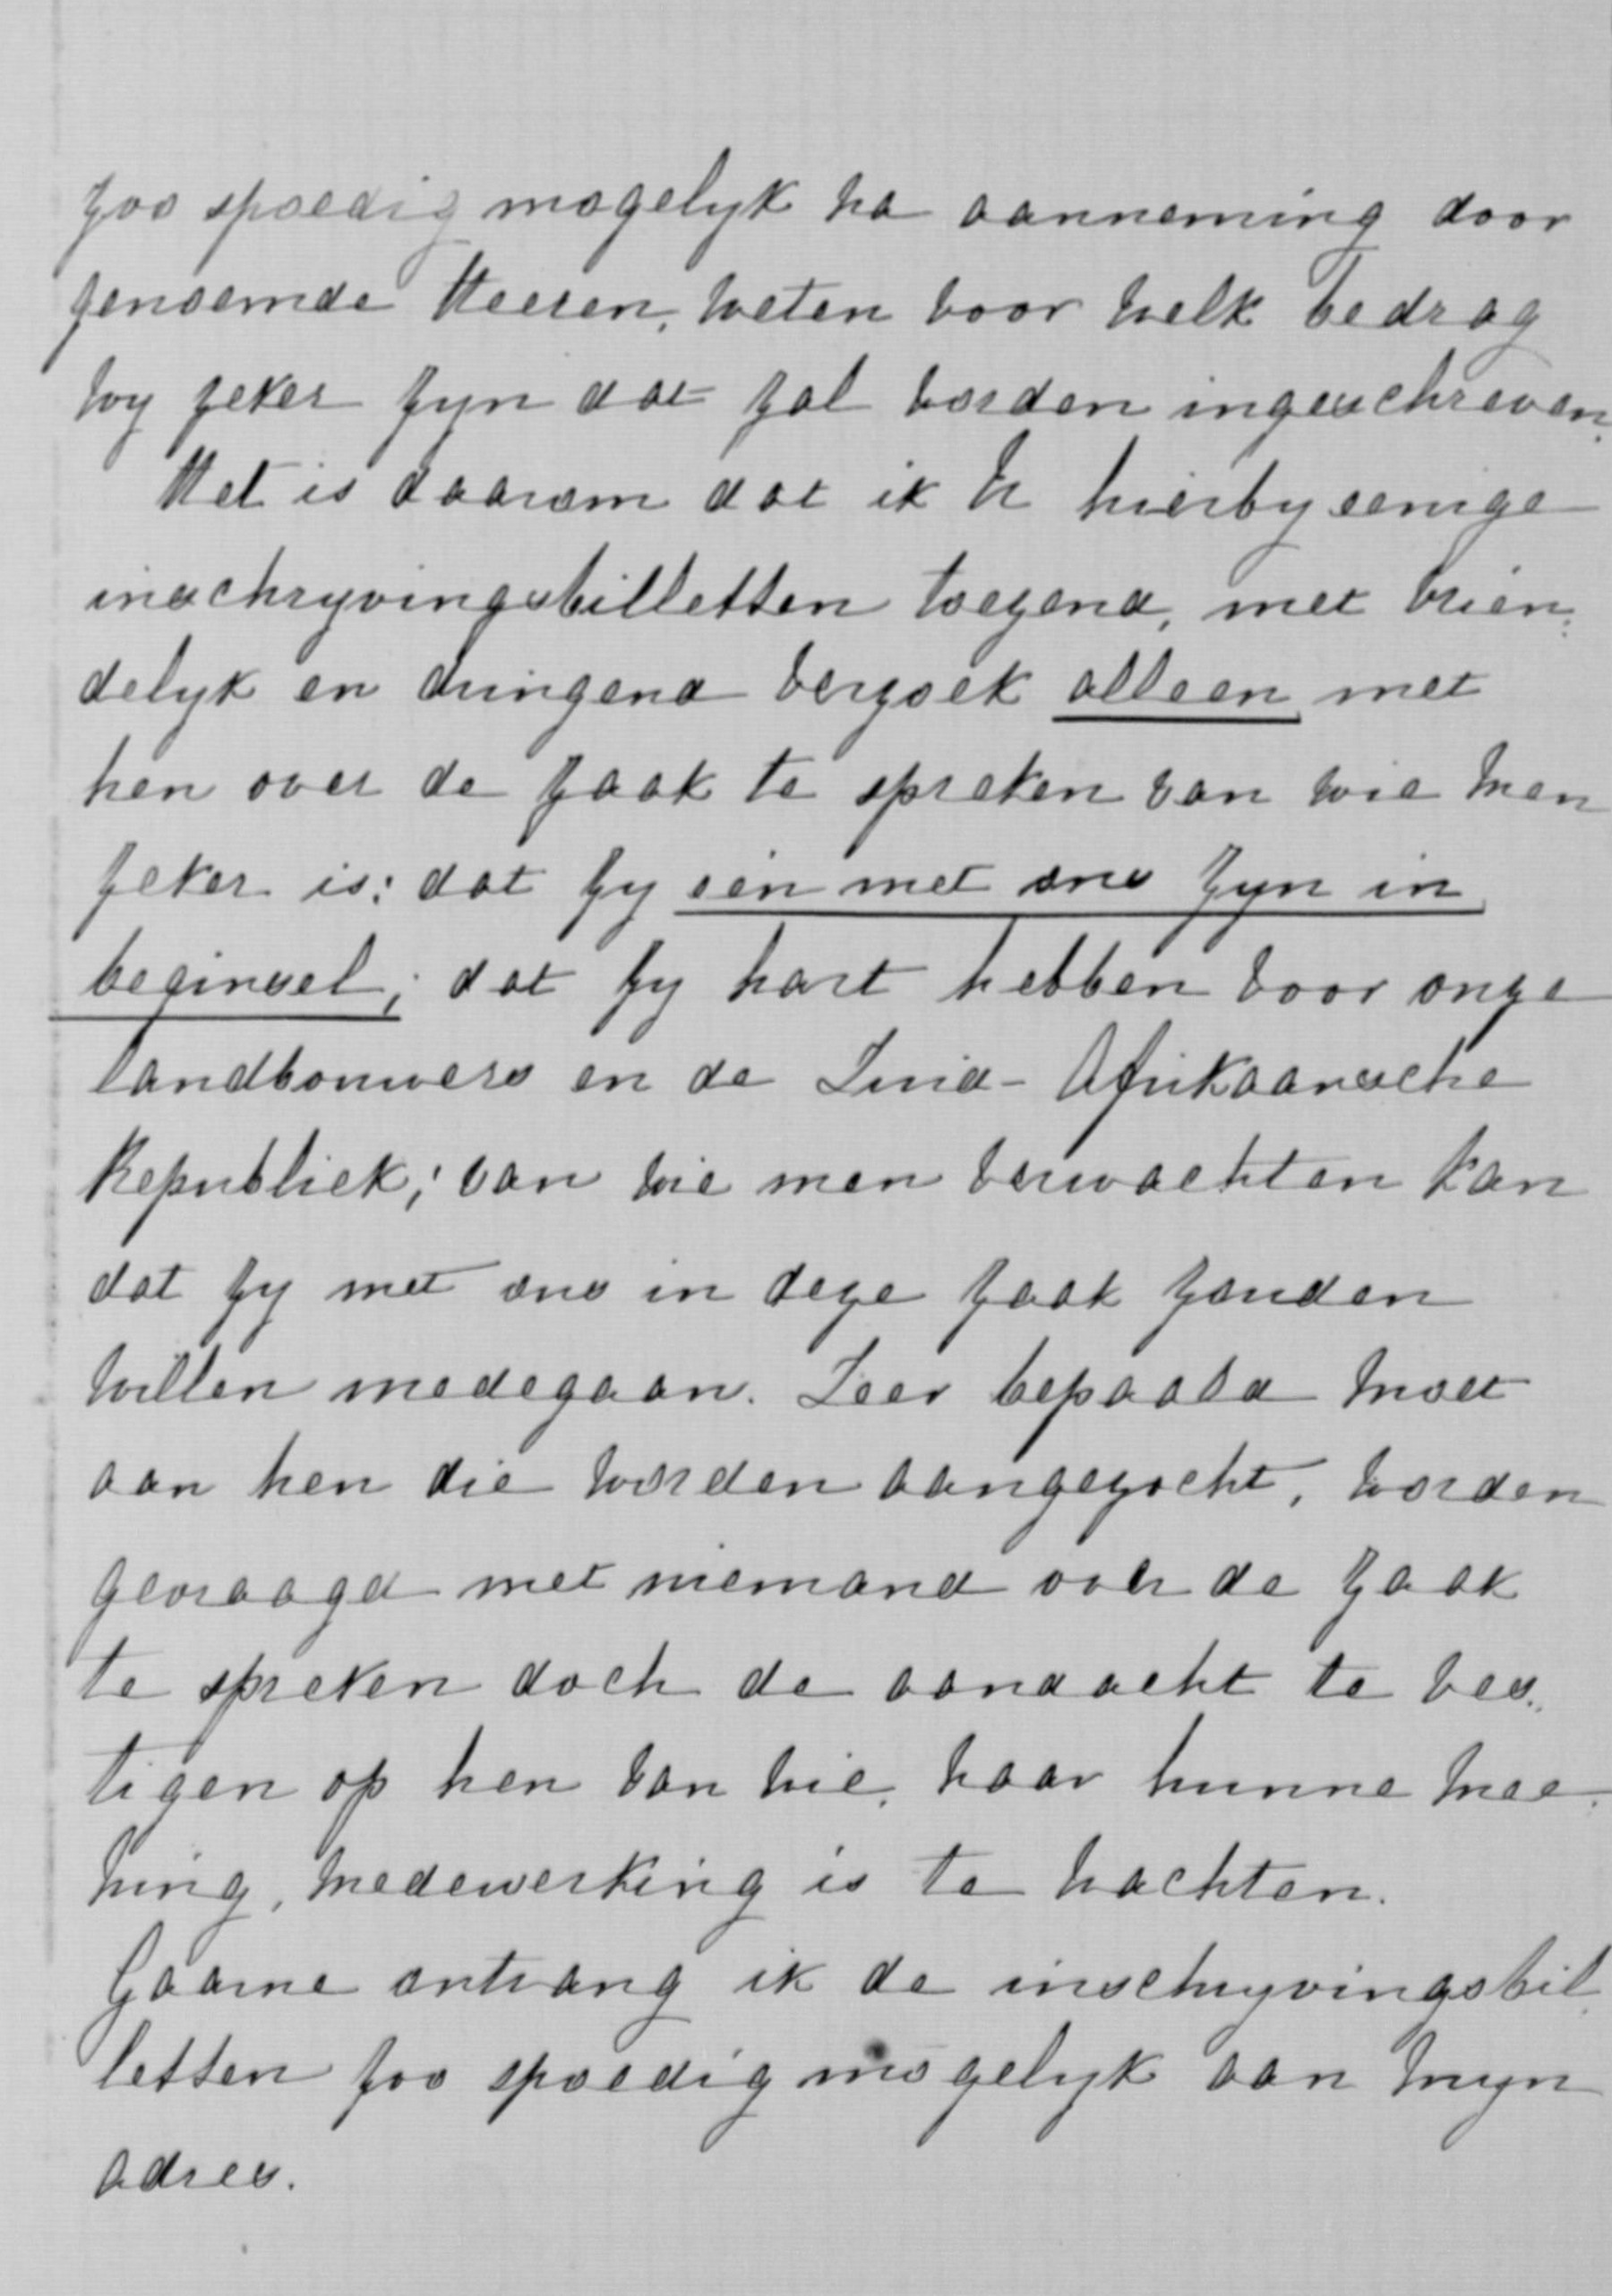 zoo spoedig mogelyk na aanneming door
genoemde Heeren, weten voor welk bedrag
wy zeker zyn dat zal worden ingeschreven.
Het is daarom dat ik U hierby eenige
inschryvingsbilletten toezend, met vrien-
delyk en dringend verzoek alleen met
hen over de zaak te spreken van wie men
zeker is: dat zy één met ons zyn in
beginsel; dat zy hart hebben voor onze
landbouwers en de Zuid-Afrikaansche
Republiek; van wie men verwachten kan
dat zy met ons in deze zaak zouden
willen medegaan. Zeer bepaald moet
aan hen die worden aangezocht, worden
gevraagd met niemand over de zaak
te spreken doch de aandacht te ves-
tigen op hen van wie, naar hunne mee-
ning, medewerking is te wachten.
Gaarne ontvang ik de inschryvingsbil-
letten zoo spoedig mogelyk aan myn
adres.